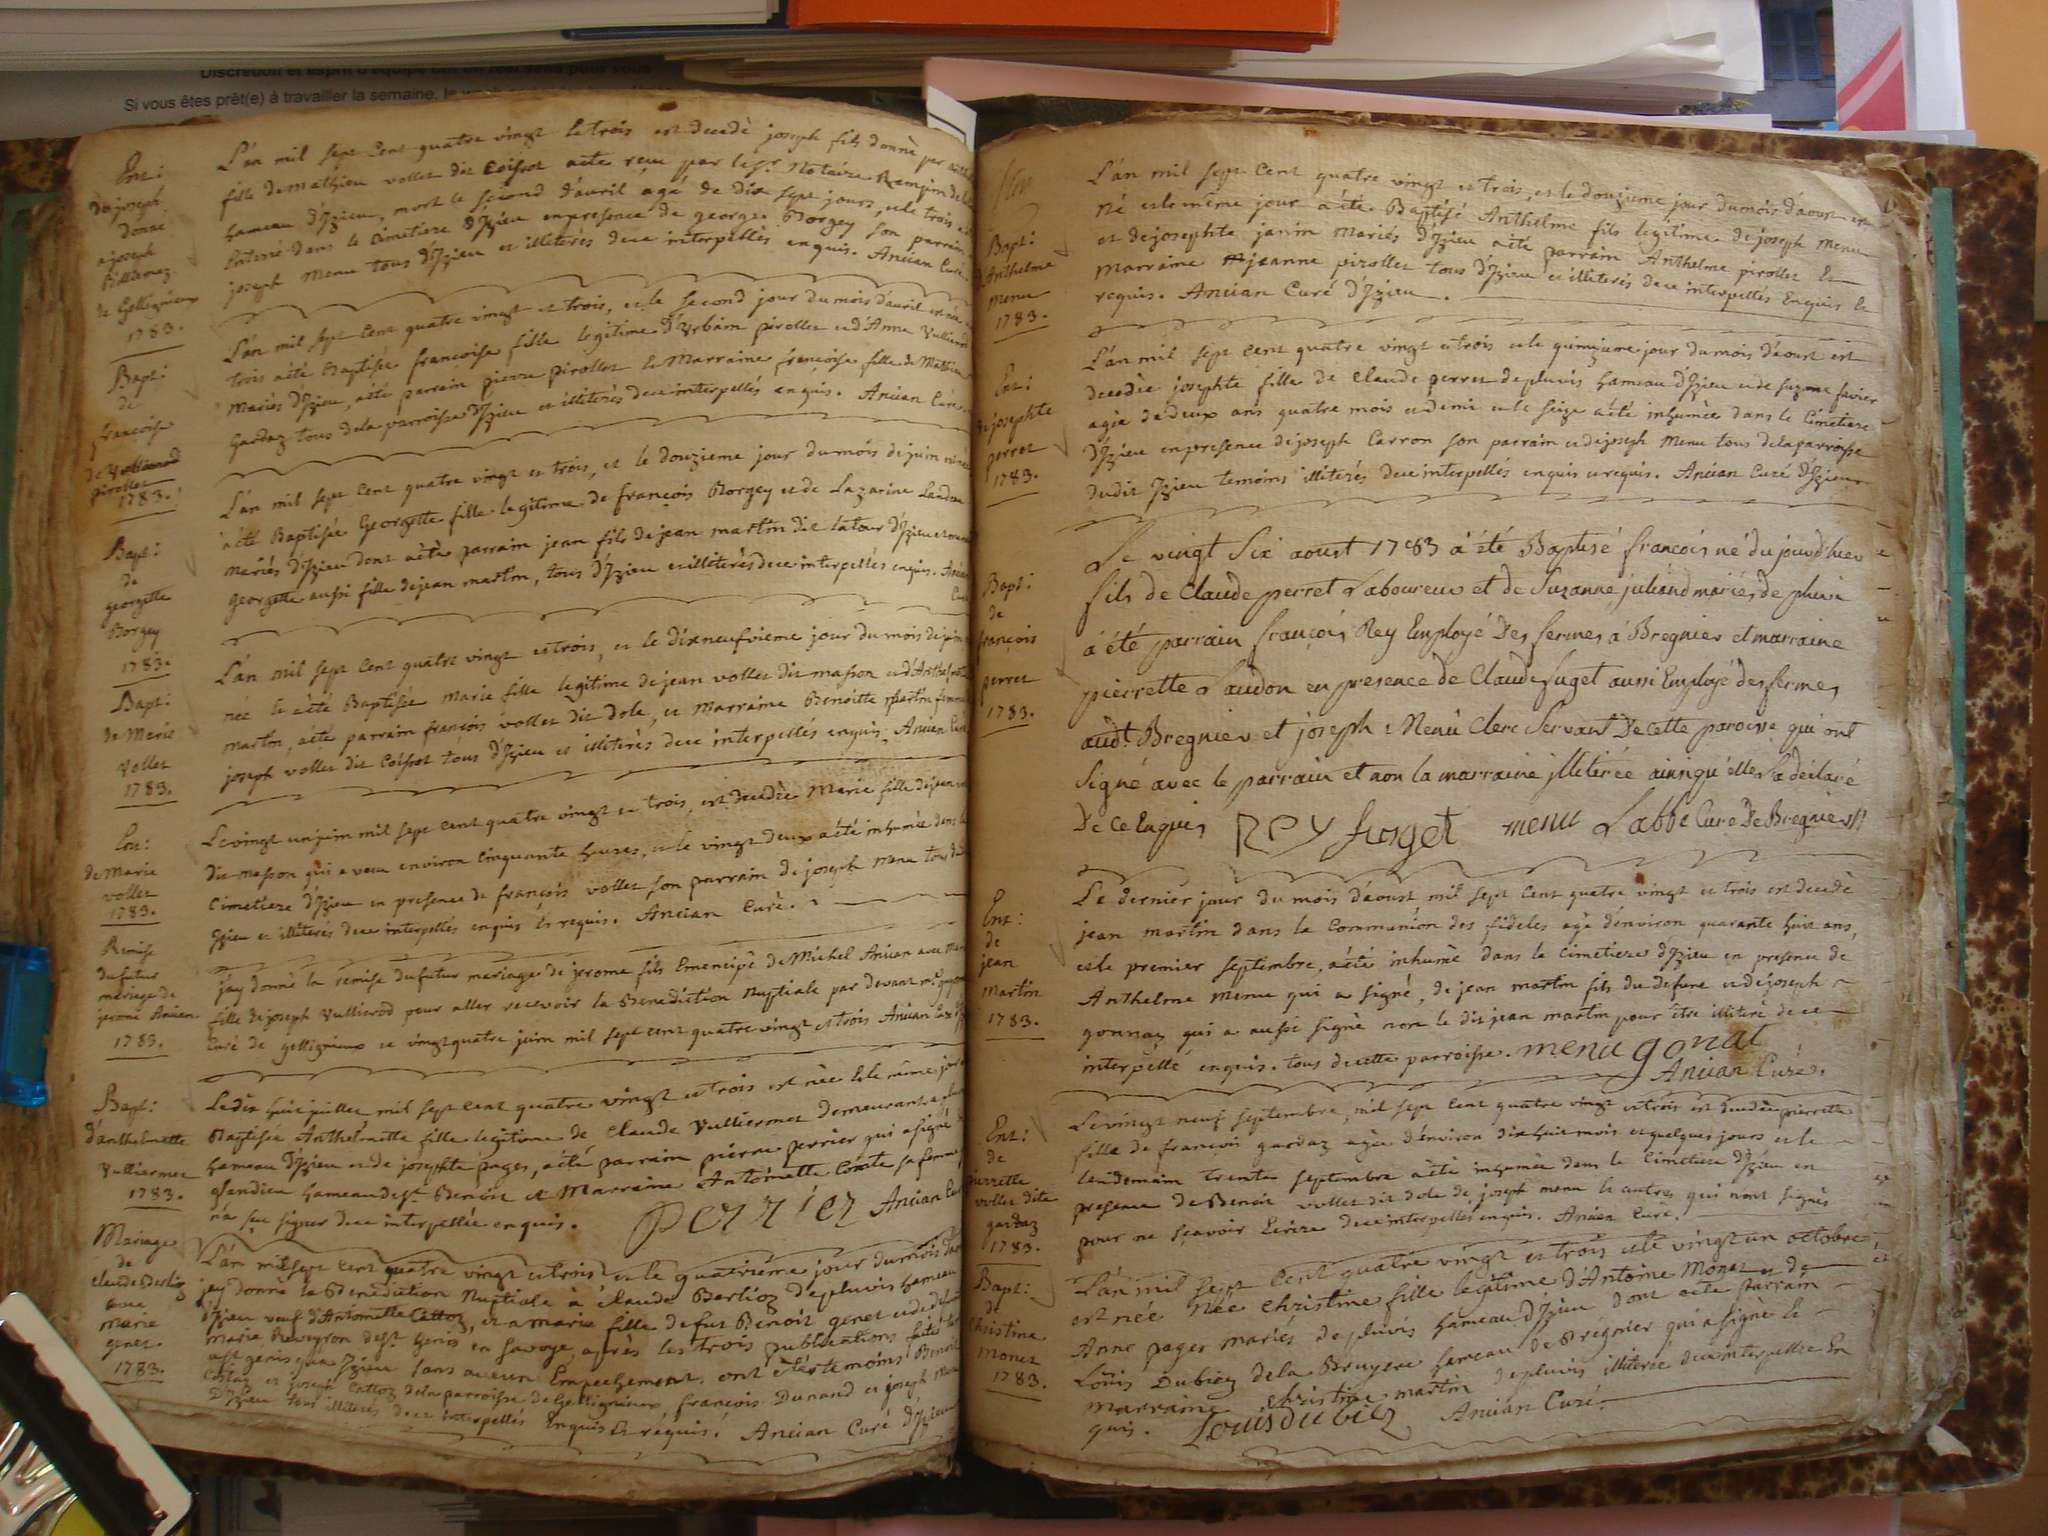 Si vous êtes prêt(e) à travailler la semaine, le
Ent:
de joseph
donné
a joseph
Billiemaz
de Gellignieux
1783.
L'an mil sept Cent quatre vingt et trois est decedé joseph fils donné par
fille de mathieu vollet dit Coissot acte reçu par le Sr. Notaire
hameau d'Izieu, mort le second d'avril agé de dix sept jours, et le trois a
Enterré dans le Cimetiere d'Izieu en presence de george Borgey son parrain
joseph Menu tous d'Izieu et illiterés de ce interpellés enquis. Ancian Curé
Bapt:
de
francoise
pirollet
1783.
L'an mil sept Cent quatre vingt et trois, et le second jour du mois d'avril est née
trois a été Baptisée francoise fille legitime d'Urbain pirollet et d'Anne Vullierod
Mariés d'Izieu, a été parrain pierre pirollet et Marraine francoise fille de Mathieu
Gardaz tous de la parroisse d'Izieu et illiterés de ce interpellés enquis. Ancian Curé
Bapt:
de
georgette
Borgey
1783.
L'an mil sept Cent quatre vingt et trois, et le douzieme jour du mois de juin
a été Baptisée Georgette fille legitime de françois Borgey et de Lazarine Landon
mariés d'Izieu dont a été parrain jean fils de jean martin dit latour d'Izieu et
georgette aussi fille de jean martin, tous d'Izieu et illiterés de ce interpellés enquis. Ancian
Curé
Bapt:
de Marie
Vollet
1783.
L'an mil sept Cent quatre vingt et trois, et le dixneufvieme jour du mois de juin
née et a été Baptisée marie fille legitime de jean vollet dit masson et d'Anthelmette
martin, a été parrain francois vollet dit dole, et Marraine Benoitte martin femme
joseph vollet dit Coissot tous d'Izieu et illiterés de ce interpellés enquis. Ancian Curé
Ent:
de Marie
vollet
1783.
Le vingt un juin mil sept cent quatre vingt et trois, est decedée Marie fille de jean
dit masson qui a vecu environ cinquante heures, et le vingt deux a été inhumée dans le
Cimetiere d'Izieu en presence de françois vollet son parrain de joseph menu tous
Izieu et illiterés de ce interpellés enquis et requis. Ancian Curé.
Remise
du futur
mariage de
jerome Ancian
1783.
j'ay donné la remise du futur mariage de jerome fils Emencipé de Michel Ancian avec
fille de joseph Vullierod pour aller recevoir la Benediction Nuptiale par devant mr.
Curé de Gelligneux ce vingt quatre juin mil sept cent quatre vingt et trois Ancian Curé
Bapt:
d'anthelmette
Vulliermet
1783.
Le dix huit juillet mil sept cent quatre vingt et trois est née et le même jour
Baptisée Anthelmette fille legitime de Claude Vulliermet demeurant a
hameau d'Izieu et de josephte pages, a été parrain pierre perrier qui a signé
glandieu hameau de St. Benoit et Marraine Antoinette Comte sa femme
n'a sçu signer de ce interpellée enquise. perrier Ancian Curé
Mariage
de
Claude Berlioz
avec
Marie
genet.
1783.
L'an mil sept Cent quatre vingt et trois et le quatrieme jour du mois
jay donné la Benediction Nuptiale à Claude Berlioz de pluvis hameau
d'Izieu veuf d'Antoinette Cattoz, et a marie fille de fut Benoit genet et de
marie Reveyron de St. genis en Savoye, après les trois publications faites
a St genis qua Izieu sans aucun Empechement. ont été temoins Benoit
et joseph Cattoz de la parroisse de Gelligneux, françois Dunand et joseph Menu
D'Izieu tous illiterés de ce interpellés Enquis et requis. Ancian Curé d'Izieu
Bapt:
d'Anthelme
menu
1783.
L'an mil sept Cent quatre vingt et trois, et le douzieme jour du mois d'aoust est
Né et le même jour a été Baptisé Anthelme fils legitime de joseph menu
et de josephte janin mariés d'Izieu a été parrain Anthelme pirollet et
marraine jeanne pirollet tous d'Izieu et illiterés de ce interpellés Enquis et
requis. Ancian Curé d'Izieu.
Ent:
de josephte
perret
1783.
L'an mil sept cent quatre vingt et trois et le quinzieme jour du mois d'aoust est
decedée josephte fille de Claude perret de pluvis hameau d'Izieu et de suzanne favier
agée de deux ans quatre mois et demi et le seize a été inhumée dans le Cimetiere
d'Izieu en presence de joseph Carron son parrain et de joseph menu tous de la parroisse
dudit Izieu temoins illiterés de ce interpellés enquis et requis. Ancian Curé d'Izieu
Bapt:
de
françois
perret
1783.
Le vingt Six aoust 1783 a été Baptisé francois né du jourd'hier
fils de Claude perret Laboureur et de Suzanne juliand mariés de pluvis
a été parrain françois Rey Employé Des fermes à Bregnier et marraine
pierrette Laudon en presence de Claude fuget aussi Employé des fermes
audt. Bregnier et joseph Menu Clerc Servant De cette paroisse qui ont
Signé avec le parrain et non la marraine illiterée ainsi qu'elle l'a déclaré
De ce Enquis REY furget menu Labbe Curé De Bregnier
Ent:
de
jean
martin
1783.
Le dernier jour du mois d'aoust mil sept Cent quatre vingt et trois est decedé
jean martin dans la Communion des fideles agé d'environ quarante huit ans,
et le premier septembre, a été inhumé dans le Cimetiere d'Izieu en presence de
Anthelme menu qui a signé, de jean martin fils du defunt et de joseph
gonnaz qui a aussi signé non le dit jean martin pour être illiteré de ce
interpellé enquis. tous de cette parroisse. menu gonat
Ancian Curé.
Ent:
de
pierrette
vollet dite
gardaz
1783.
Le vingt neuf septembre, mil sept Cent quatre vingt et trois est decedée pierrette
fille de francois gardaz agée d'environ dix huit mois et quelques jours et le
lendemain trente septembre a été inhumée dans le Cimetiere d'Izieu en
presence de Benoit vollet dit dole de joseph menu et autres qui n'ont signés
pour ne sçavoir Ecrire de ce interpellés enquis. Ancian Curé.
Bapt:
de
Christine
monet
1783.
L'an mil sept Cent quatre vingt et trois et le vingt un octobre
est née Née Christine fille legitime d'Antoine Monet et de
Anne pages mariés de pluvis hameau d'Izieu dont a été parrain
Loüis Dubiez de la Bruyere hameau de Brégnier qui a signé et
marraine Christine martin de pluvis illiterée de ce interpellée En
quis. Louis dubiez Ancian Curé.